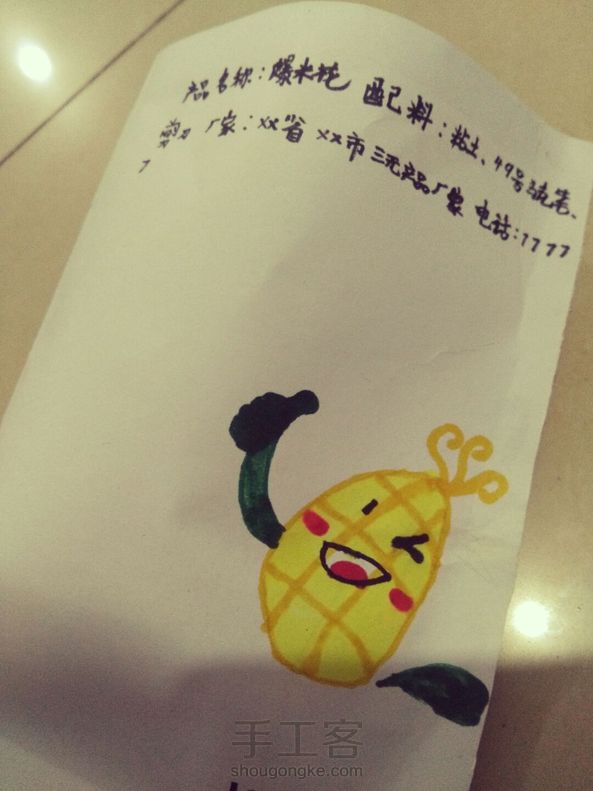 产品名称：爆米花 配料：粘土、49号马克笔、
剪刀 厂家：xx省 xx市三无产品厂家 电话：7777
7
手工客
shougongke.com